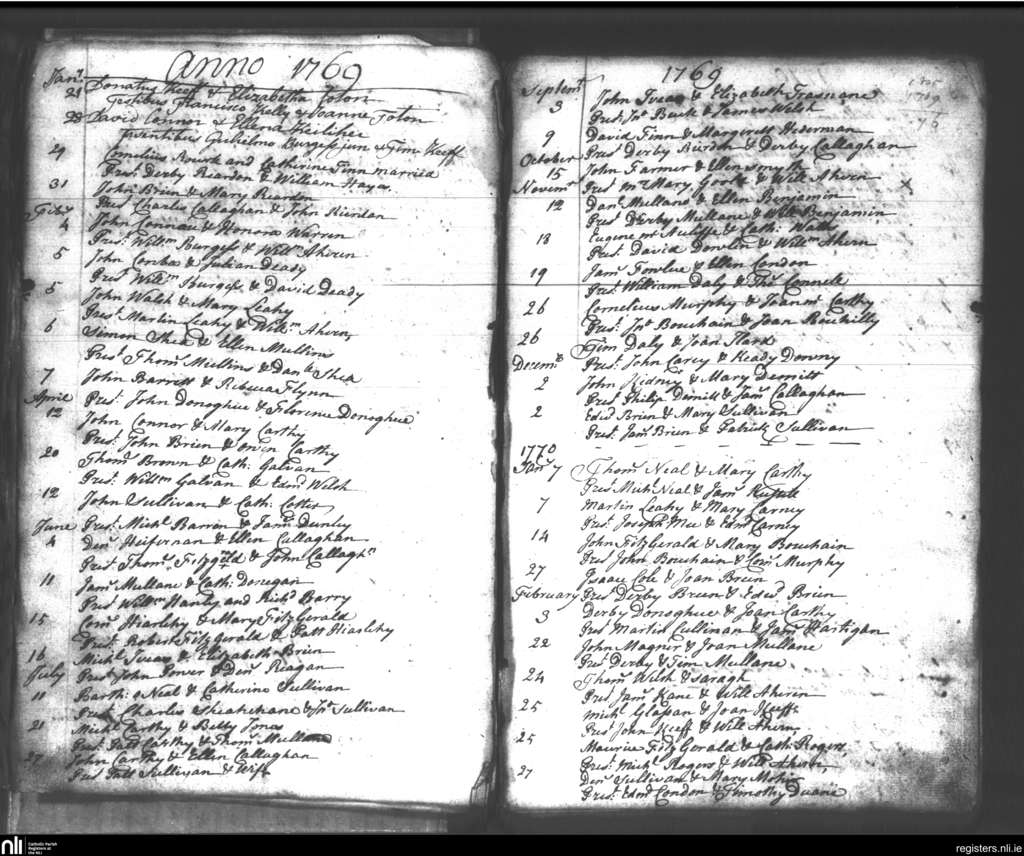 Anno 1769
Jan.y
21 Donatus Keeff & Elizabetha Toton
Testibus Francisco Kelly & Joanne Toton
23 David Connor & Ellena
Juventibus Gulielmo Burgess jun & Tim Keeff
29 Cornelius Rourk and Catherine Finn married
Pres. Derby Reardon & William Hayes
31 John Brien & Mary Reardon
Pres.t Charles Callaghan & John Riordan
Feb.y
4 John Connau & Honora Warren
Pres.t Will.m Burgess & Will.m Ahern
5 John Corba & Julian Deady
Pres.t Will.m Burgess & David Deady
5 John Walsh & Mary Leahy
Pres.t Martin Leahy & Will.m Ahern
6 Simon Shea & Ellen Mullins
Pres.t Thom.s Mullins & Dan.l Shea
7 John Barrett & Rebecca Flynn
Pres.t John Donoghue & Florence Donoghue
April
12 John Connor & Mary Carthy
Pres.t John Brien & Owen Carthy
20 Thom.s Brown & Cath: Galvan
Pres.t Will.m Galvan & Edm.d Welsh
12 John Sullivan & Cath: Cotter
Pres.t Mich.l Barron & Jam.s Dunley
June
4 Den.s Heifernan & Ellen Callaghan
Pres.t Thom.s Fitzger.ald & John Callagh.n
11 Jam.s Mullane & Cath: Donegan
Pres.t Will.m Hanly and Rich.d Barry
15 Corn.s Hiarlehy & Mary FitzGerald
Pres.t Robert FitzGerald & Patt Hiarlehy
16 Mich.l & Elizabeth Brien
Pres.t John Power & Den.s Reagan
July
11 Barth: Neal & Catherine Sullivan
Pres.t Charles & Jn.o Sullivan
21 Mich.l Carthy & Betty Jones
Pres.t Patt Carthy & Thom.s
27 John Carthy & Ellen Callaghan
Pres Patt Sullivan & Wife
1769
Septem.r
3 John & Elizabeth
Pres.t Jn.o Buck & James Welsh
9 David Finn & Margarett Hederman
Pres.t Derby Riordon & Derby Callaghan
October
15 John Farmer & Ellen
Pres.t M.r Mary & Will Ahern
Novem.r
12 Dan.l Mullane & Ellen Benjamin
Pres Derby Mullane & Will Benjamin
18 Eugene M.c Auliffe & Cath: Wall
Pres.t David Dowlin & Will.m Ahern
19 Jam.s Fowlue & Ellen Condon
Pres.t William Daly & Tho.s Connell
26 Cornelius Murphy & Joan M.c Carthy
Pres.t Jn.o Bouchain & Joan
26 Tim Daly & Joan
Pres.t John Carey & Ready Downy
Decem.br
2 John Kidney & Mary Dermitt
Pres.t Philip Dermitt & Jam.s Callaghan
2 Edw.d Brien & Mary Sullivan
Pres.t Jam.s Brien & Patrick Sullivan
1770
Jan.y 7 Thom.s Neal & Mary Carthy
Pres.t Mich.l Neal & Jam.s
7 Martin Leahy & Mary Carney
Pres.t Joseph Mee & Edm.d Carney
14 John FitzGerald & Mary Bouchain
Pres John Bouchain & Corn.s Murphy
27 Isaac Cole & Joan Breen
Pres.t Derby Breen & Edw.d Brien
February
3 Derby Donoghue & Joan Carthy
Pres.t Martin Cullinan & Jam.s Hartigan
22 John Magner & Joan Mullane
Pres.t Derby & Tim Mullane
24 Thom.s Welsh & Saragh
Pres Jam.s Kane & Will Ahern
25 Mich.l Glassan & Joan Keeffe
Pres John Keeff & Will Ahern
25 Maurice FitzGerald & Cath: Rogers
Pres.t Mich.l Rogers & Will Ahern
27 Den.s Sullivan & Mary
Pres.t Edm.d Condon & Timothy Duane
nli
Catholic Parish
Registers at
the NLI
registers.nli.ie